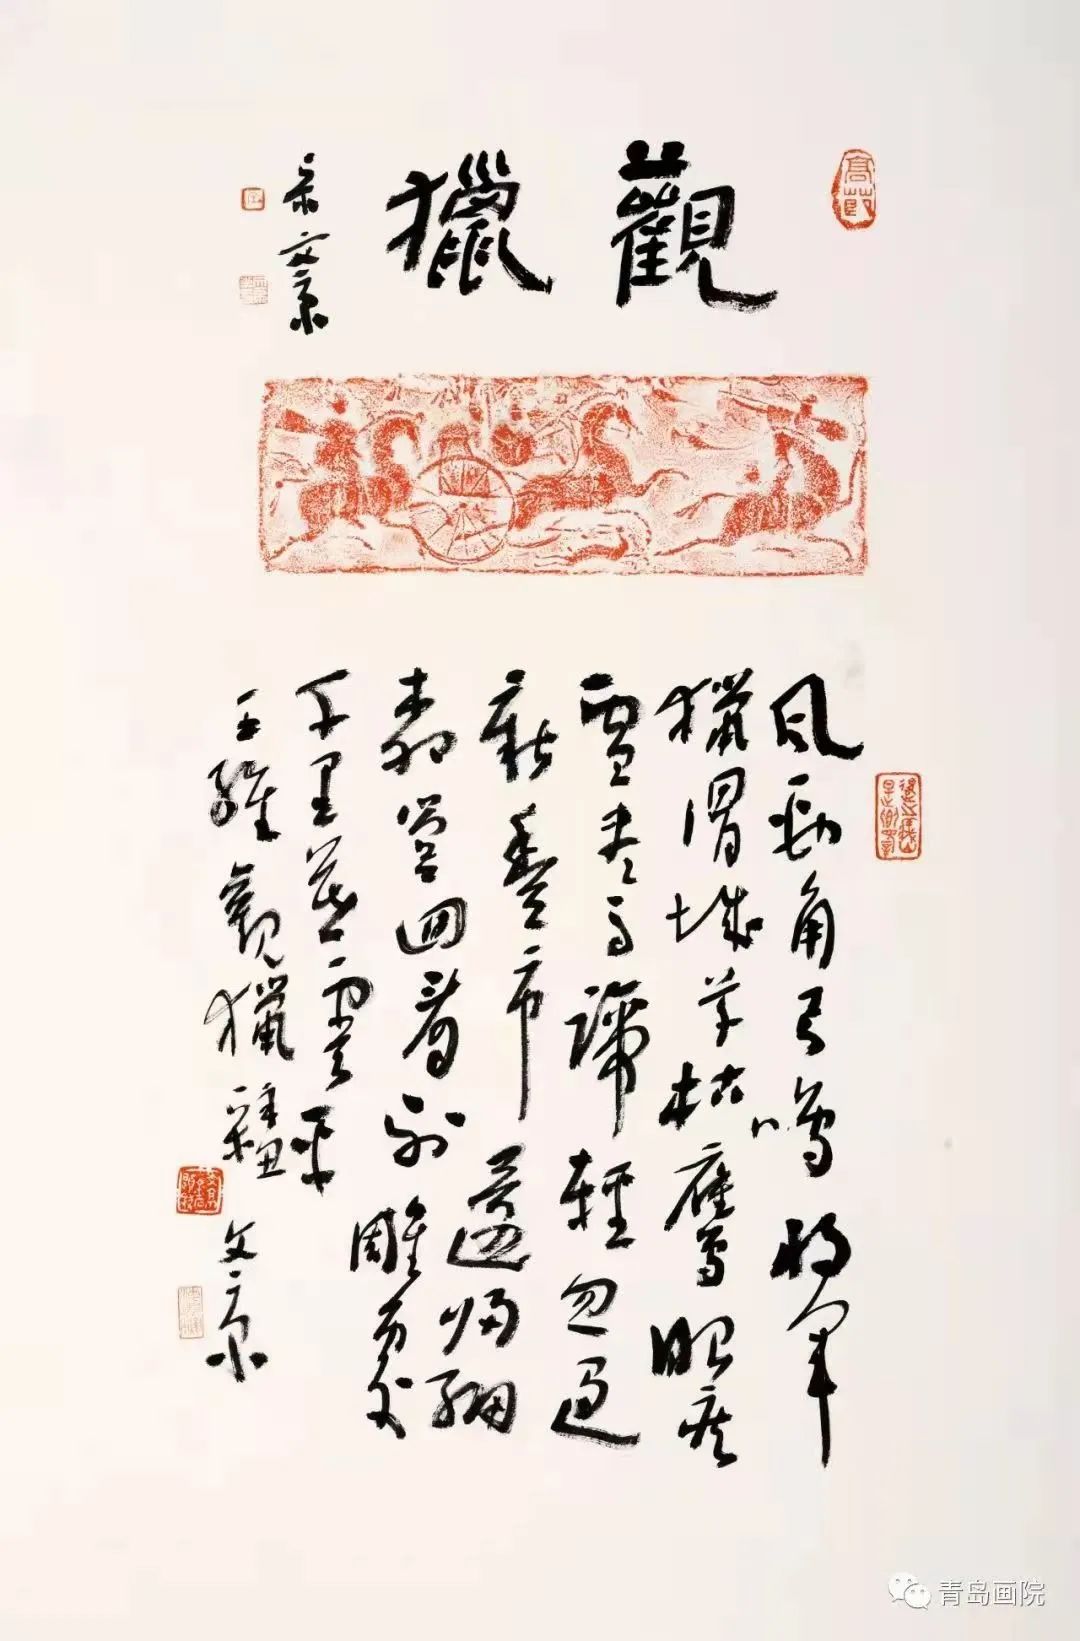 觀獵
宋文京
風勁角弓鳴將軍
獵渭城草枯鷹眼疾
雪盡馬蹄輕忽過
新豐市還歸細
柳營回看射雕處
千里暮雲平
王維觀獵 文京
青岛画院